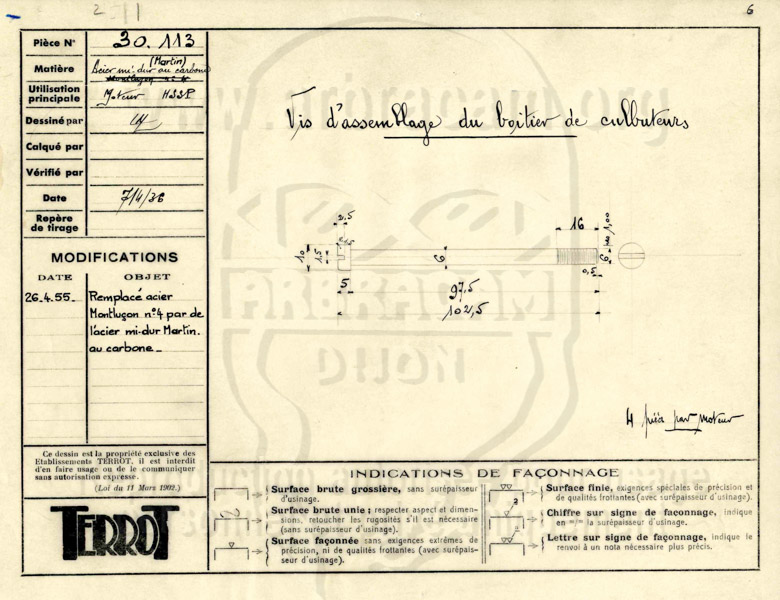 2 - 11
6
Pièce N° 30.113
(Martin)
Matière Acier mi-dur au carbone
Utilisation principale Moteur HSSP
Dessiné par
Calqué par
Vérifié par
Date 7/4/36
Repère de tirage
MODIFICATIONS
DATE OBJET
26.4.55_ Remplacé acier
Montluçon n°4 par de
l'acier mi-dur Martin.
au carbone_
Ce dessin est la propriété exclusive des
Etablissements TERROT, il est interdit
d'en faire usage ou de le communiquer
sans autorisation expresse.
(Loi du 11 Mars 1902.)
TERROT
www.arbracam.org
Vis d'assemblage du boîtier de culbuteurs
2,5
16
1,00
10
1,5
6
6
0,5
5
97,5
102,5
ARBRACAM
DIJON
4 pièces par moteur
INDICATIONS DE FAÇONNAGE
Surface brute grossière, sans surépaisseur
d'usinage.
Surface brute unie; respecter aspect et dimen-
sions, retoucher les rugosités s'il est nécessaire
(sans surépaisseur d'usinage).
Surface façonnée sans exigences extrêmes de
précision, ni de qualités frottantes (avec surépais-
seur d'usinage).
Surface finie, exigences spéciales de précision et
de qualités frottantes (avec surépaisseur d'usinage).
Chiffre sur signe de façonnage, indique
en m/m la surépaisseur d'usinage.
Lettre sur signe de façonnage, indique le
renvoi à un nota nécessaire plus précis.